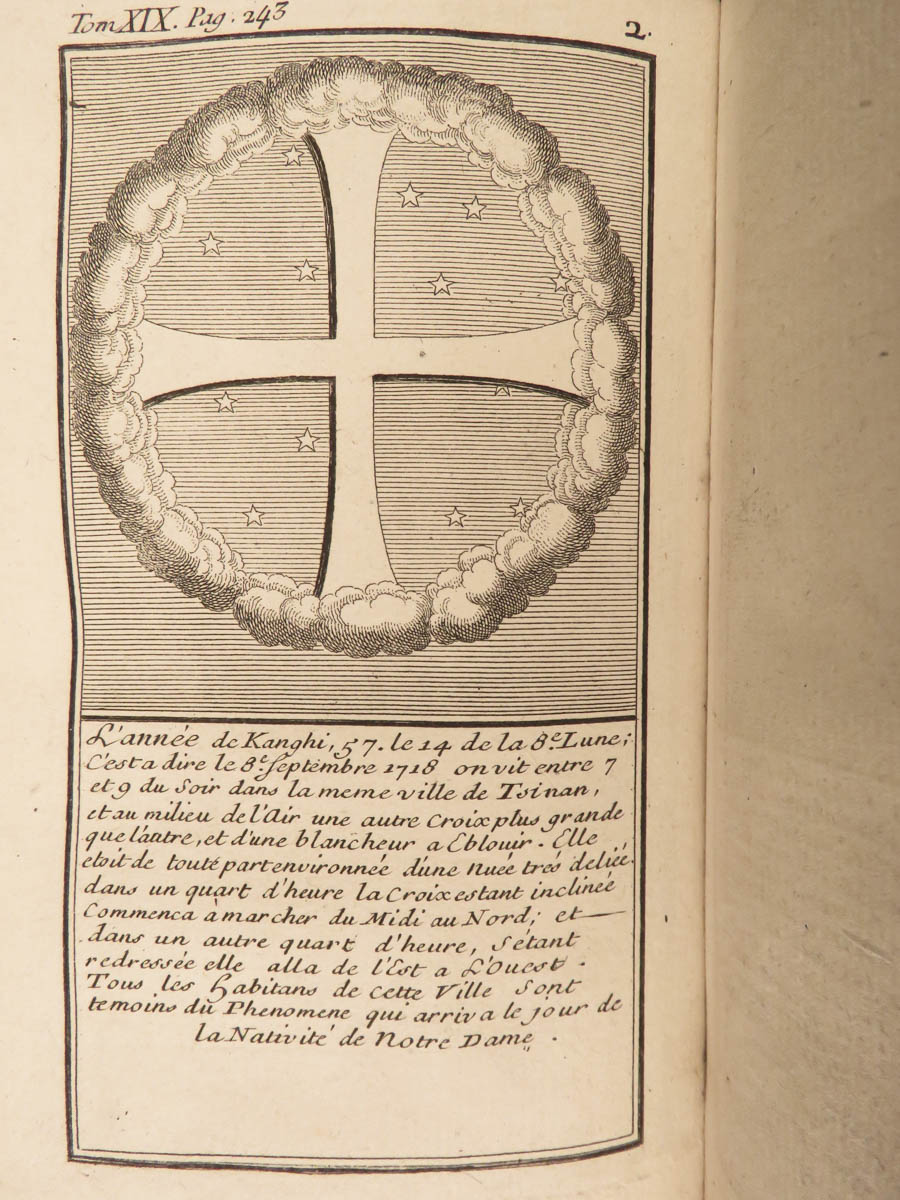 Tom XIX. Pag. 243
2.
L'année de Kanghi, 57. le 14 de la 8.e Lune;
C'est a dire le 8.e Septembre 1718 on vit entre 7
et 9 du Soir dans la meme ville de Tsinan,
et au milieu de l'Air une autre Croix plus grande
que l'autre, et d'une blancheur a Eblouir. Elle
etoit de touté part environnée d'une Nuée trés deliée.
dans un quart d'heure la Croix estant inclinée
Commenca à marcher du Midi au Nord; et —
dans un autre quart d'heure, S'étant
redressée elle alla de l'Est a L'Ouest.
Tous les Habitans de Cette Ville Sont
temoins du Phenomene qui arriva le jour de
la Nativité de Notre Dame.